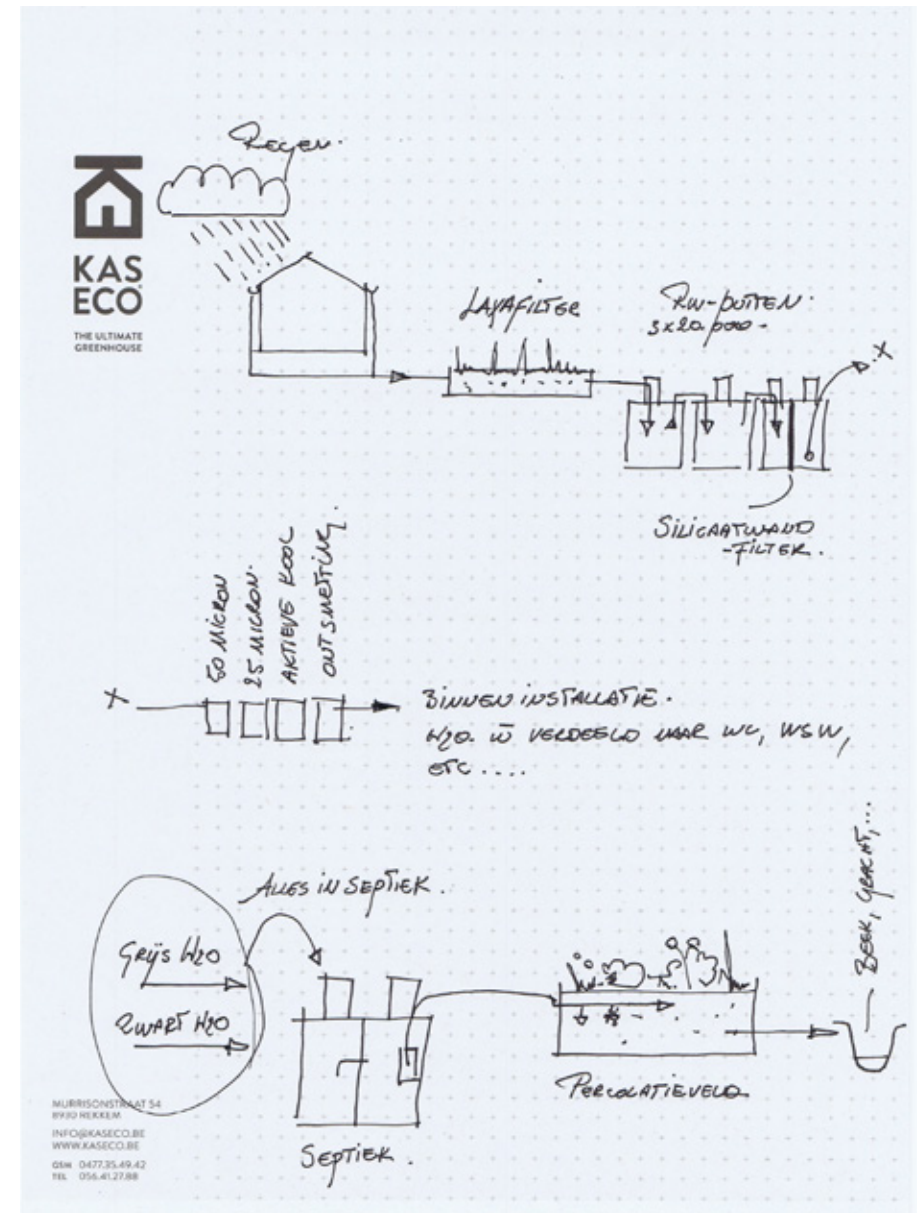 Regen.
KAS
ECO
THE ULTIMATE
GREENHOUSE
LAVAFILTER
RW-PUTTEN:
3x20.000-
X
SILICAATWAND
-FILTER.
50 MICRON
25 MICRON.
AKTIEVE KOOL
ONTSMETTING.
X
BINNENINSTALLATIE.
H2O. W̄ VERDEELD NAAR WC, WSW,
ETC....
ALLES IN SEPTIEK.
GRIJS H2O
ZWART H2O
BEEK, GRACHT,...
PERCOLATIEVELD
SEPTIEK.
MURRISONSTRAAT 54
8930 REKKEM
INFO@KASECO.BE
WWW.KASECO.BE
GSM 0477.35.49.42
TEL 056.41.27.88